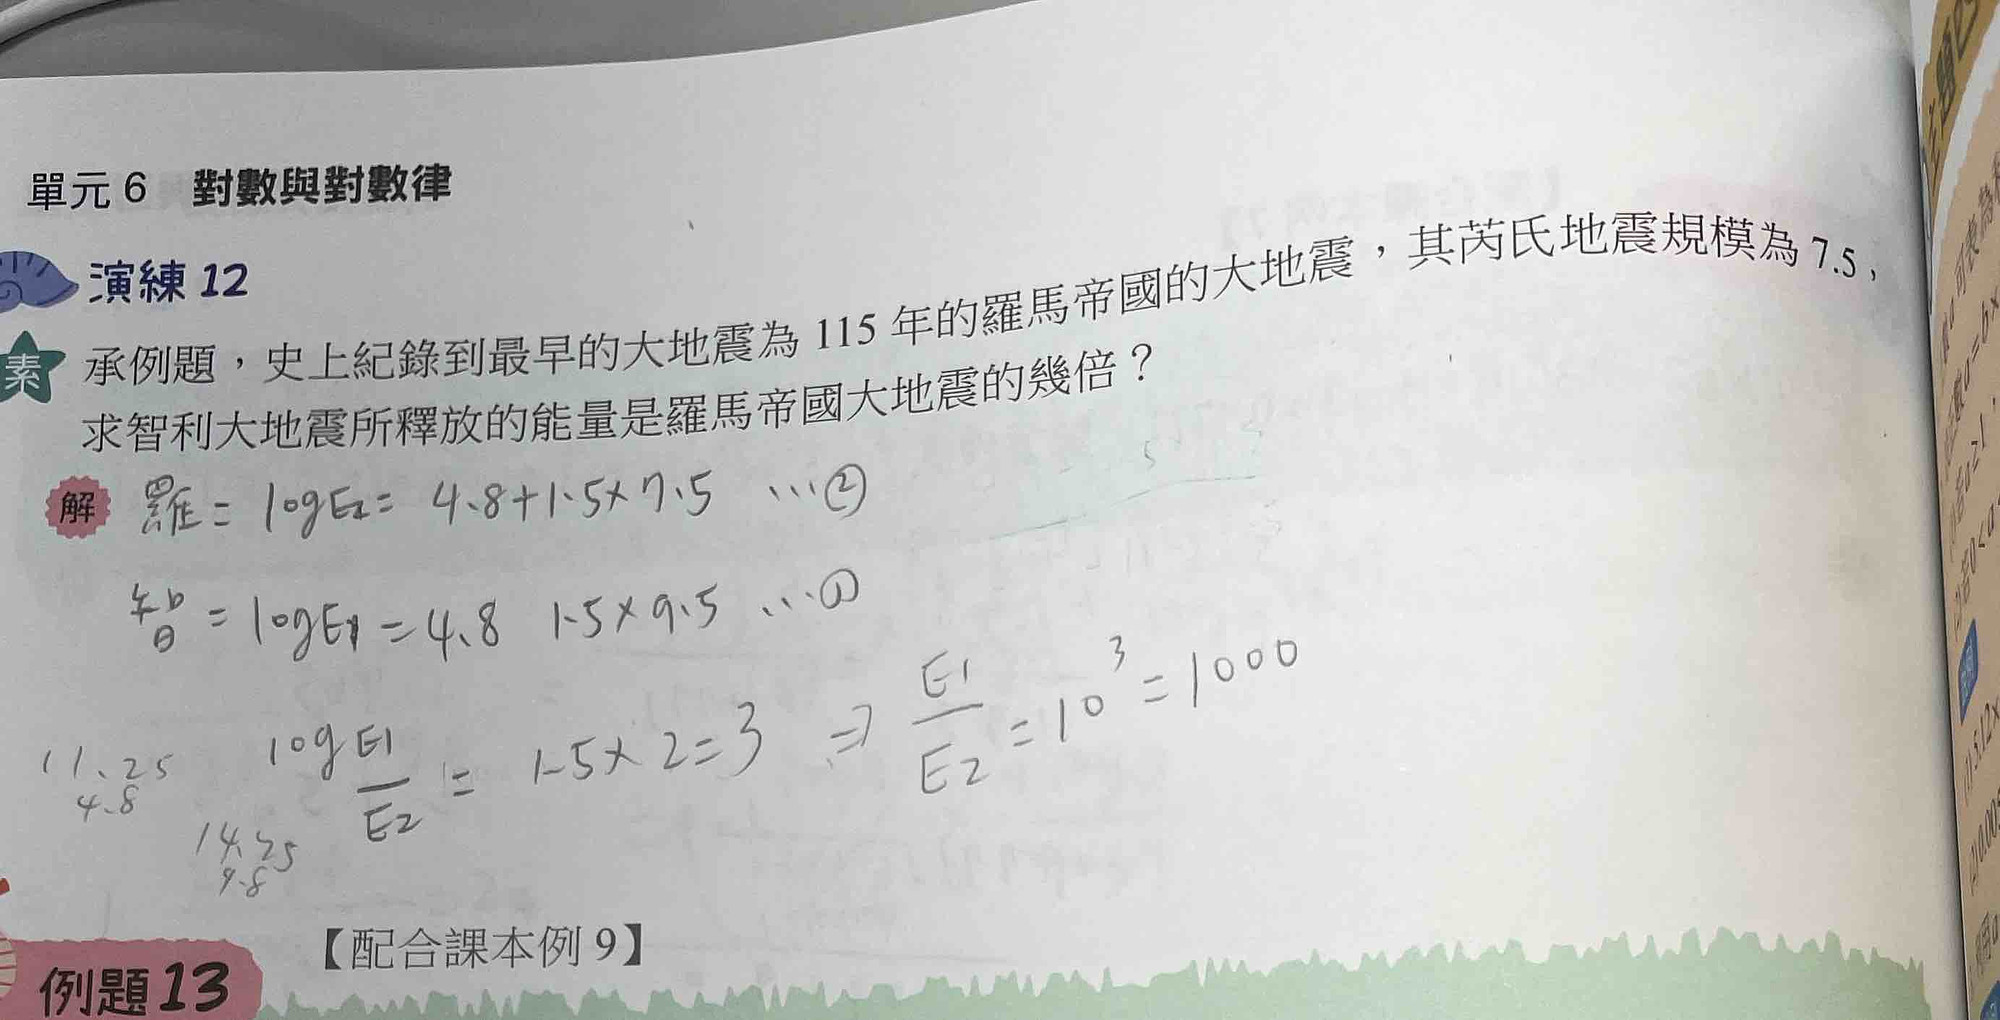 單元 6 對數與對數律
演練 12
素 承例題，史上紀錄到最早的大地震為 115 年的羅馬帝國的大地震，其芮氏地震規模為 7.5，
求智利大地震所釋放的能量是羅馬帝國大地震的幾倍？
解 羅 = logE2 = 4.8+1.5×7.5 …②
智 = logE1 = 4.8 1.5×9.5 …①
log E1/E2 = 1.5×2=3 ⇒ E1/E2 = 10³ = 1000
11.25
4.8
14.25
4.8
【配合課本例 9】
例題 13